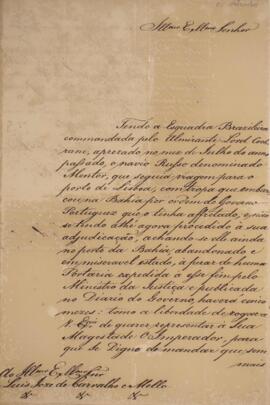 Illmo. e Exmo. Senhor
Tendo a Esquadra Brazileira
commandada pelo Almirante Lord Coch
rane, aprezado no mez de Julho do anno
passado, o navio Russo denominado
Mentor, que seguia viagem para o
porto de Lisboa, com tropa que embar
cou na Bahia por ordem do Governo
Portuguez que o tinha afretado, e não
se tendo athé agora procedido á sua
adjudicação, achando-se elle ainda
no porto da Bahia, abandonado e
em miseravel estado, á pezar de huma
Portaria expedida á esse fim pelo
Ministro da Justiça e publicada
no Diario do Governo, haverá cinco
mezes: tomo a liberdade de rogar á
V. Exa. de querer representar á Sua
Magestade O Imperador, para
que Se Digne de mandar que sem
mais
Ao Illmo. e Exmo. Snr.
Luis Joze de Carvalho e Mello
&a. &a.